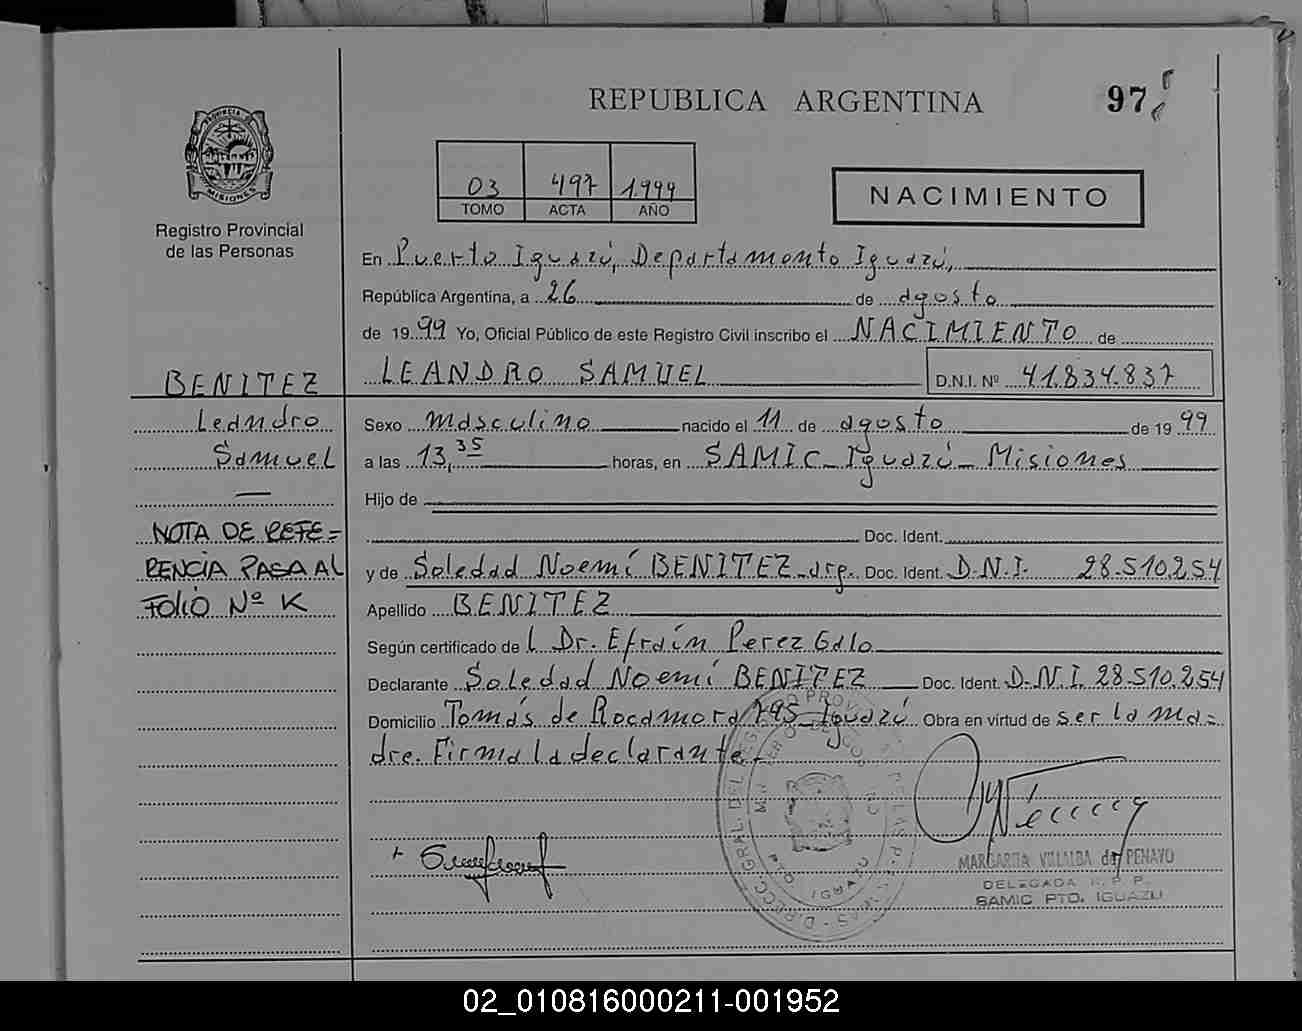 REPUBLICA ARGENTINA
97
PROVINCIA DE
MISIONES
Registro Provincial
de las Personas
03 497 1.999
TOMO ACTA AÑO
NACIMIENTO
En Puerto Iguazú, Departamento Iguazú,
República Argentina, a 26 de agosto
de 1999 Yo, Oficial Público de este Registro Civil inscribo el NACIMIENTO de
LEANDRO SAMUEL D.N.I. Nº 41.834.837
BENITEZ
Leandro
Samuel
NOTA DE REFE=
RENCIA PASA AL
FOLIO Nº K
Sexo masculino nacido el 11 de agosto de 1999
a las 13,35 horas, en SAMIC_Iguazú_Misiones
Hijo de
Doc. Ident.
y de Soledad Noemí BENITEZ_arg. Doc. Ident. D.N.I. 28.510.254
Apellido BENITEZ
Según certificado de l Dr. Efraín Perez Gallo
Declarante Soledad Noemí BENITEZ Doc. Ident. D.N.I. 28.510.254
Domicilio Tomás de Rocamora 795_Iguazú Obra en virtud de ser la ma=
dre. Firma la declarante_
MARGARITA VILLALBA de PENAYO
DELEGADA R. P. P.
SAMIC PTO. IGUAZU
02_010816000211-001952